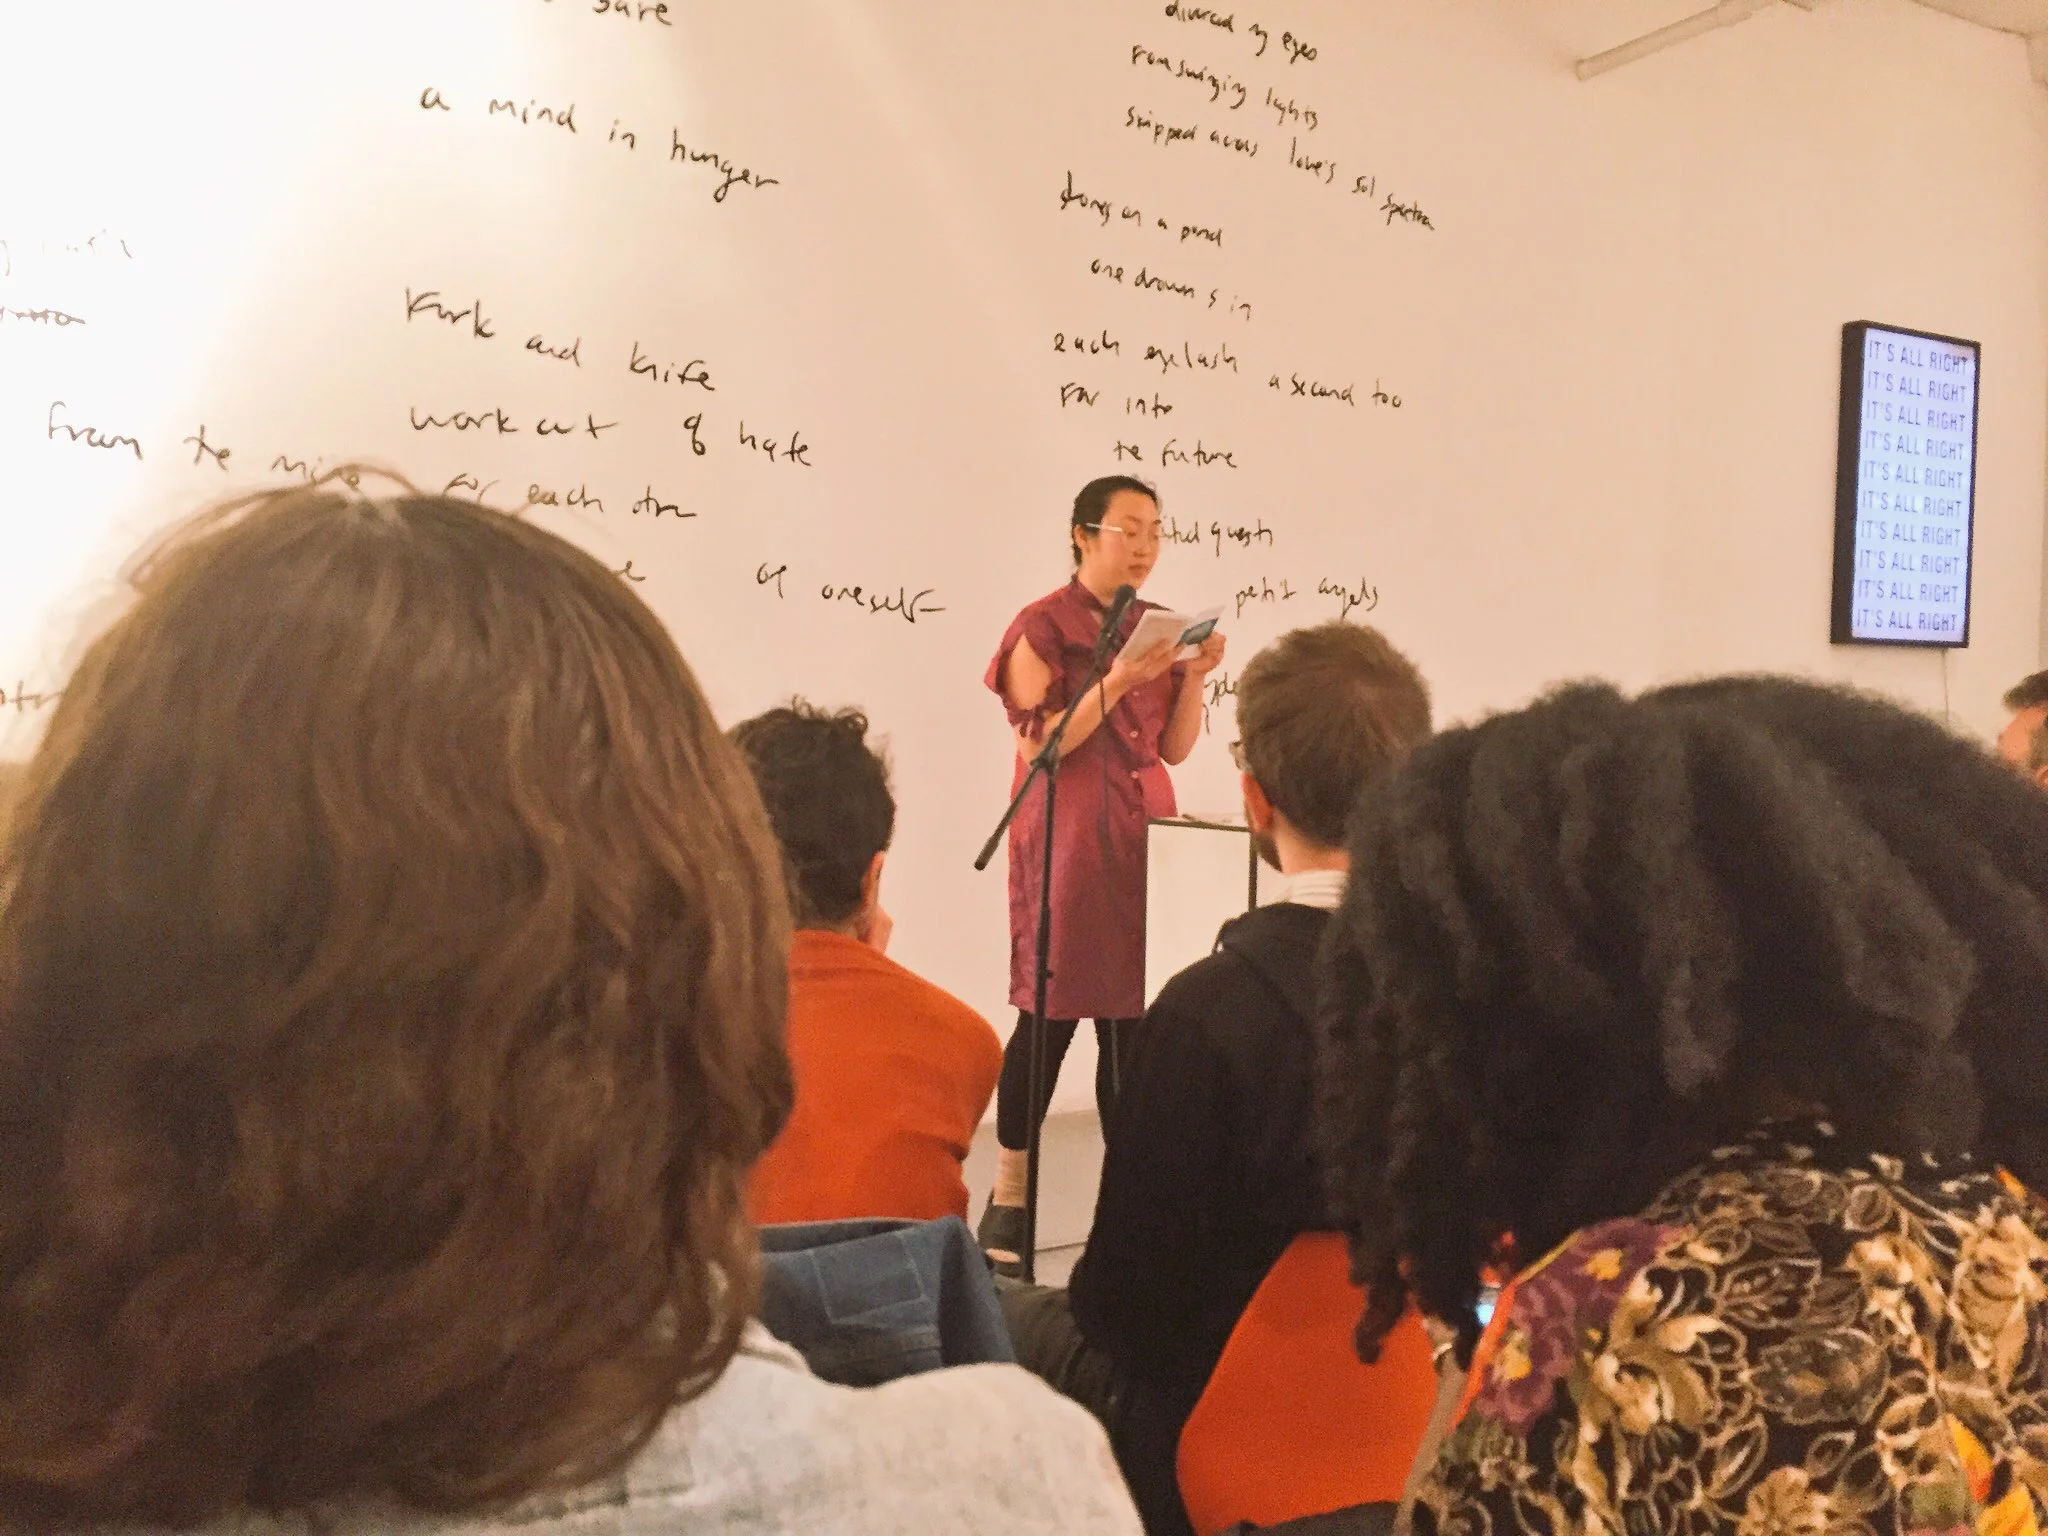 sure
a mind in hunger
Fork and knife
work out of hate
from the
for each
of oneself
eyes
From swinging lights
skipped across love's sol spectra
on a pond
one drowns in
each eyelash a second too
Far into
te Future
guests
petit angels
IT'S ALL RIGHT
IT'S ALL RIGHT
IT'S ALL RIGHT
IT'S ALL RIGHT
IT'S ALL RIGHT
IT'S ALL RIGHT
IT'S ALL RIGHT
IT'S ALL RIGHT
IT'S ALL RIGHT
IT'S ALL RIGHT